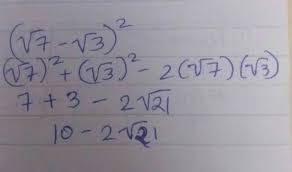 (√7 - √3)²
(√7)² + (√3)² - 2(√7)(√3)
7 + 3 - 2√21
10 - 2√21